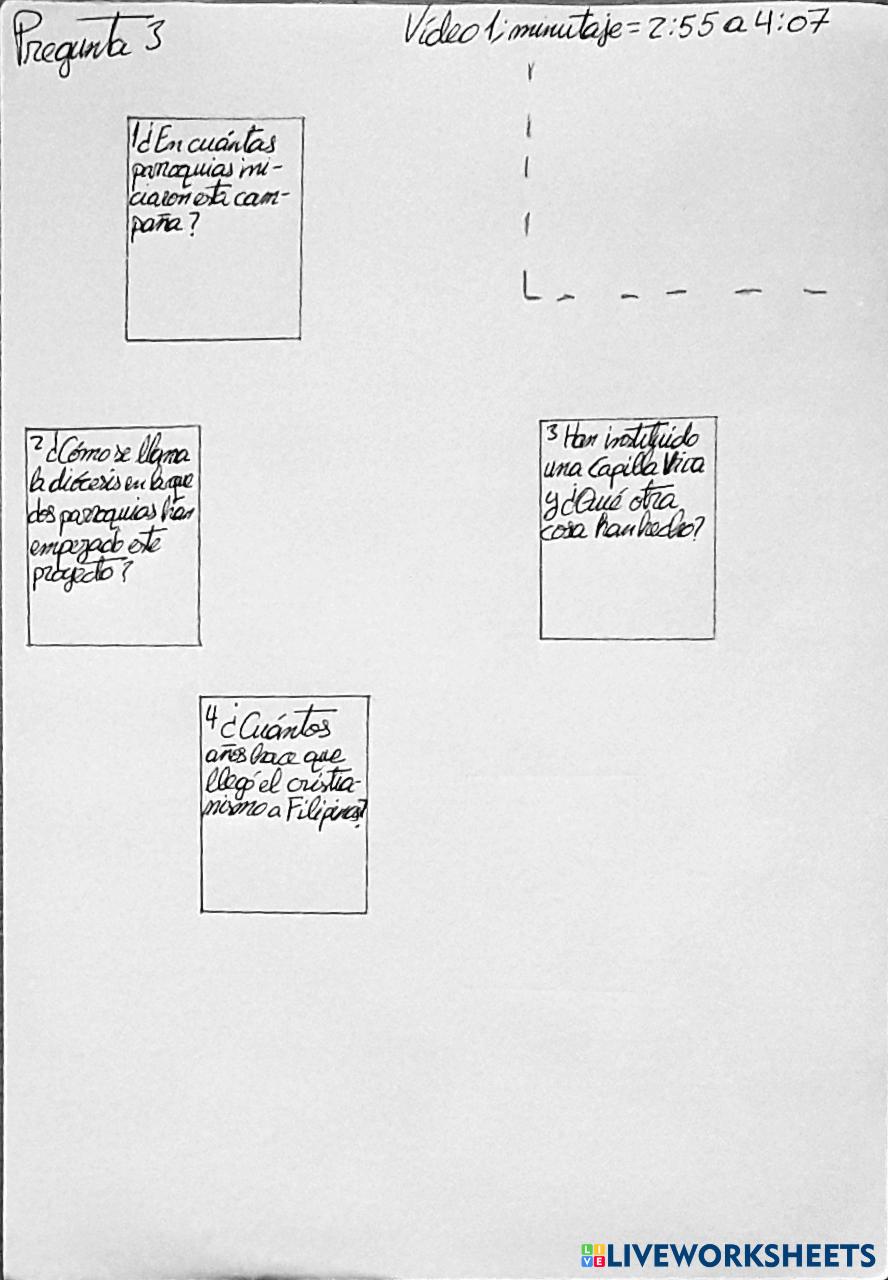 Pregunta 3
Vídeo 1; minutaje = 2:55 a 4:07
1 ¿En cuántas
parroquias ini-
ciaron esta cam-
paña?
2 ¿Cómo se llama
la diócesis en la que
dos parroquias han
empezado este
proyecto?
3 Han instituido
una Capilla Viva
y ¿Qué otra
cosa han hecho?
4 ¿Cuántos
años hace que
llegó el cristia-
nismo a Filipinas?
LIVE LIVEWORKSHEETS